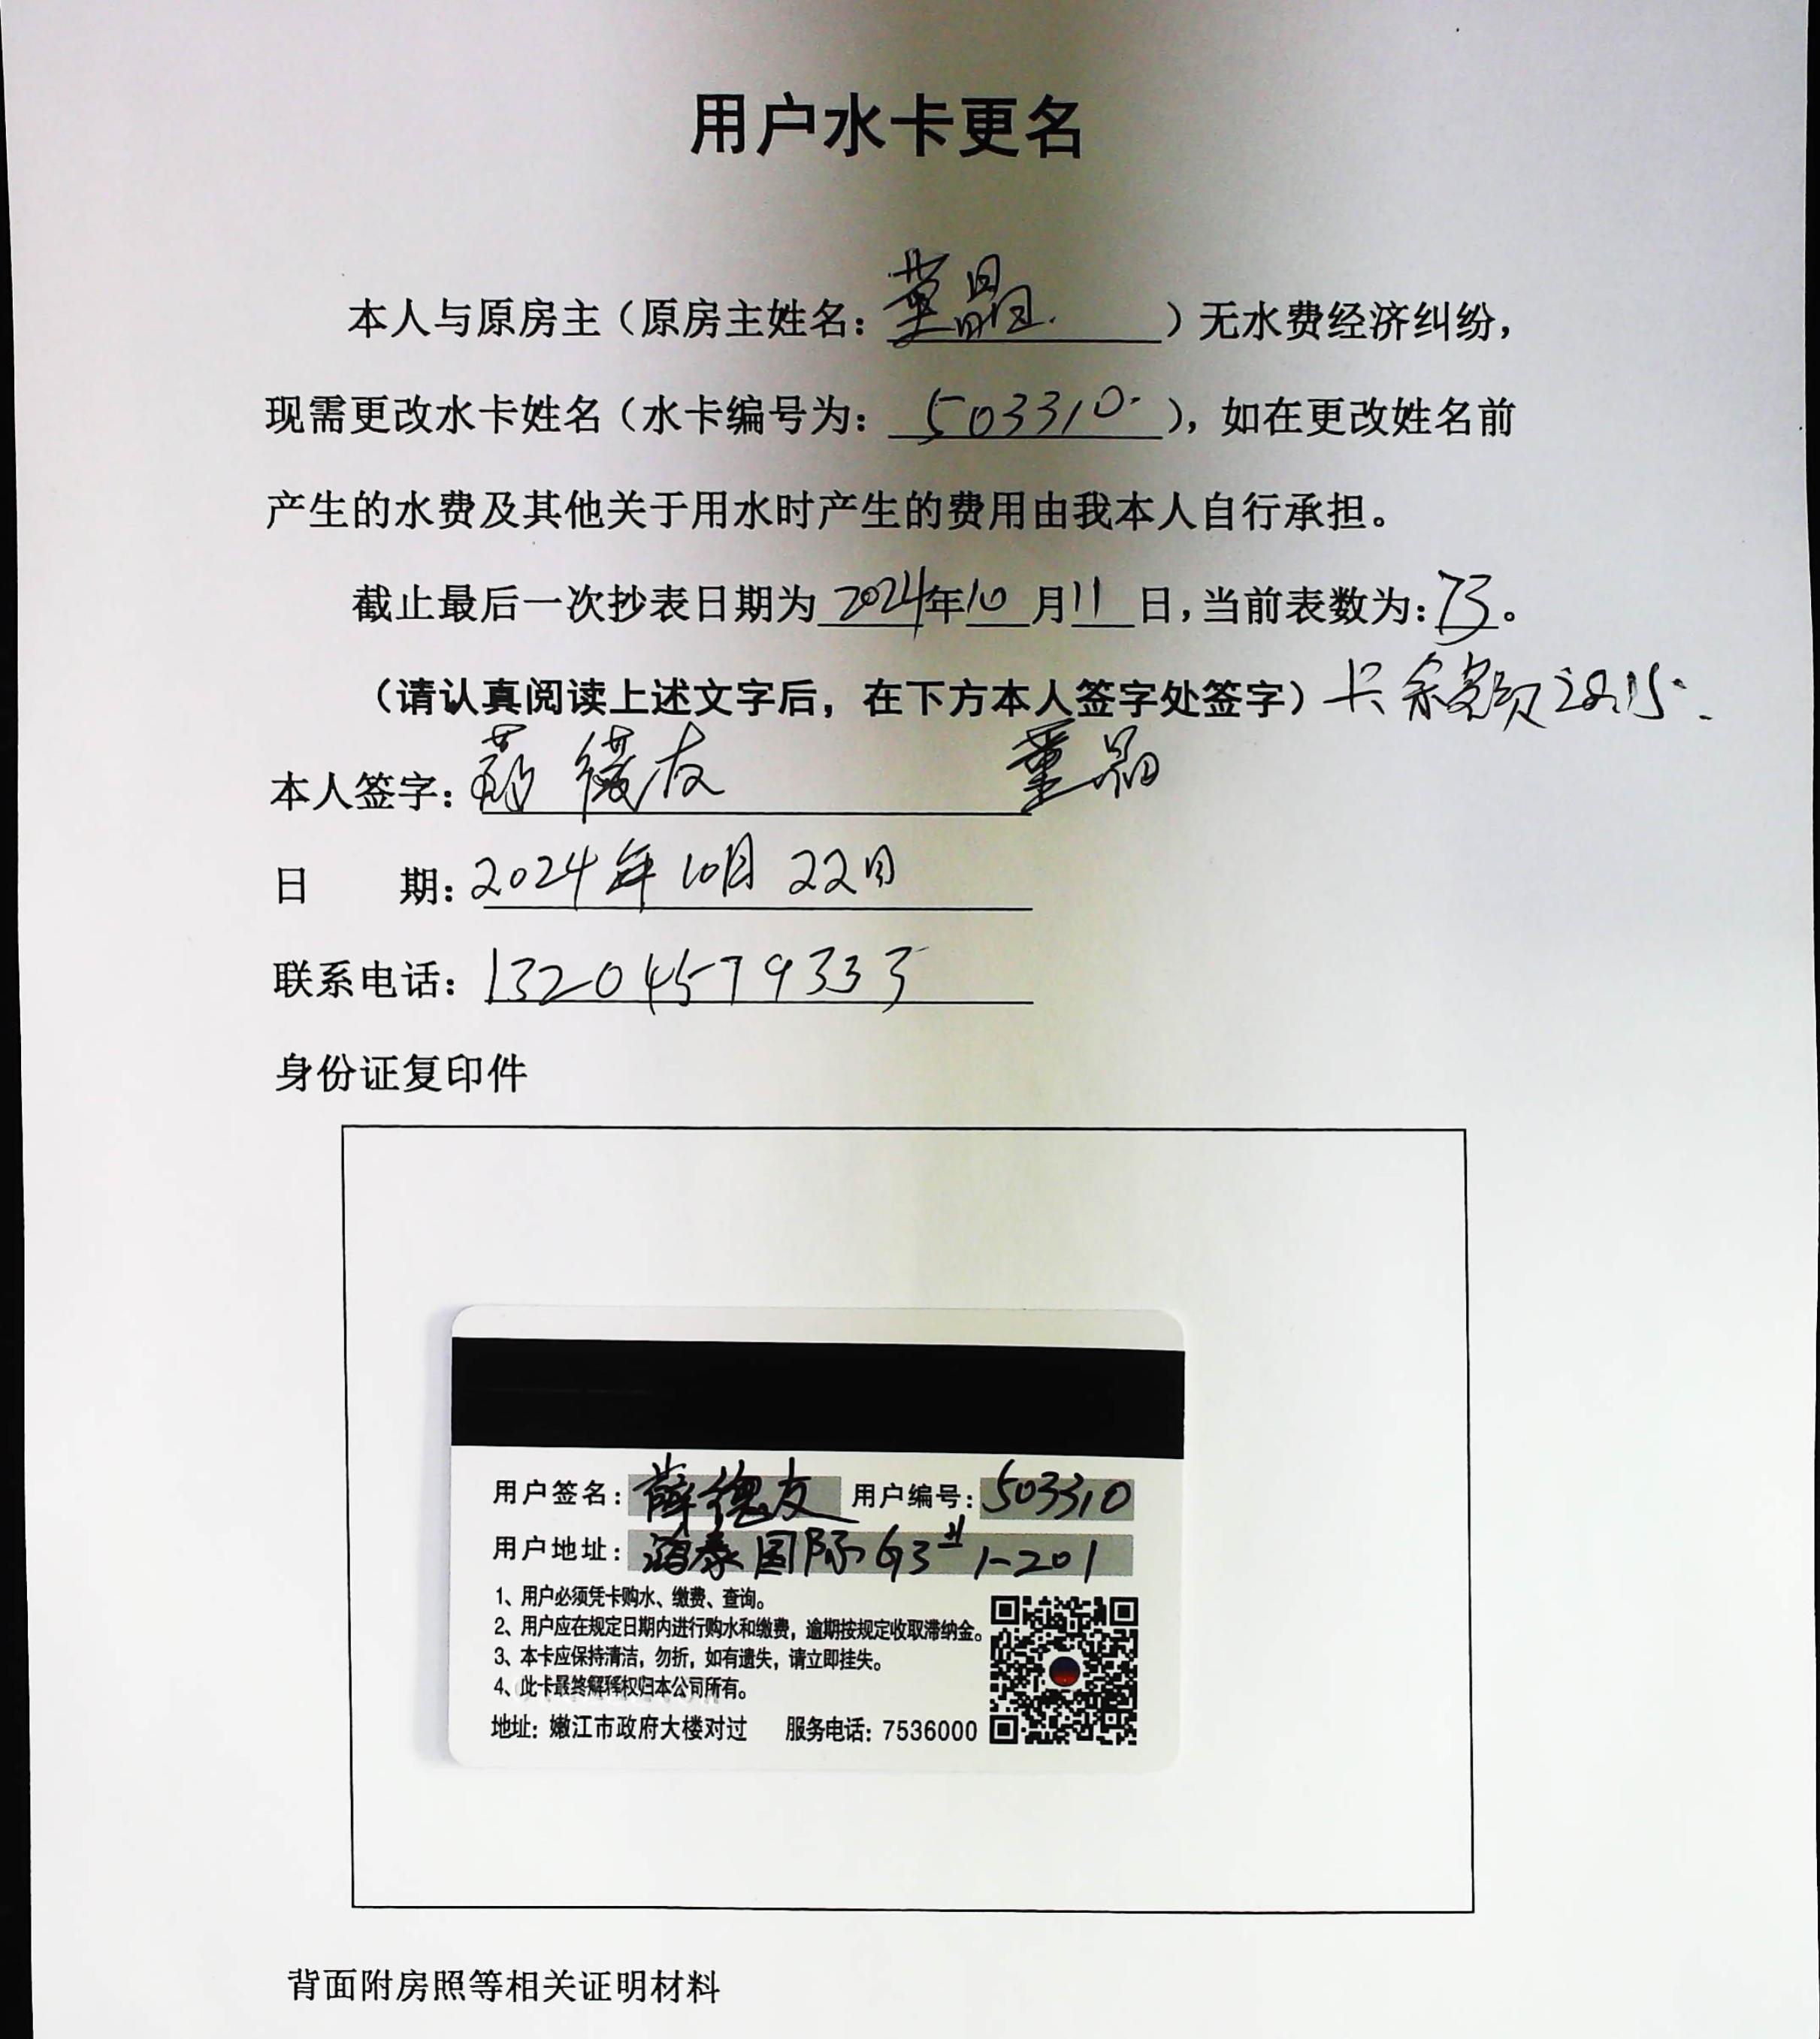 用户水卡更名
本人与原房主（原房主姓名：董晶）无水费经济纠纷，
现需更改水卡姓名（水卡编号为：503310），如在更改姓名前
产生的水费及其他关于用水时产生的费用由我本人自行承担。
截止最后一次抄表日期为2024年10月11日，当前表数为：73。
（请认真阅读上述文字后，在下方本人签字处签字）卡余额
本人签字：薛德友 董晶
日 期：2024年10月22日
联系电话：13204579333
身份证复印件
用户签名：薛德友 用户编号：503310
用户地址：鸿泰国际G3# 1-201
1、用户必须凭卡购水、缴费、查询。
2、用户应在规定日期内进行购水和缴费，逾期按规定收取滞纳金。
3、本卡应保持清洁，勿折，如有遗失，请立即挂失。
4、此卡最终解释权归本公司所有。
地址：嫩江市政府大楼对过 服务电话：7536000
背面附房照等相关证明材料